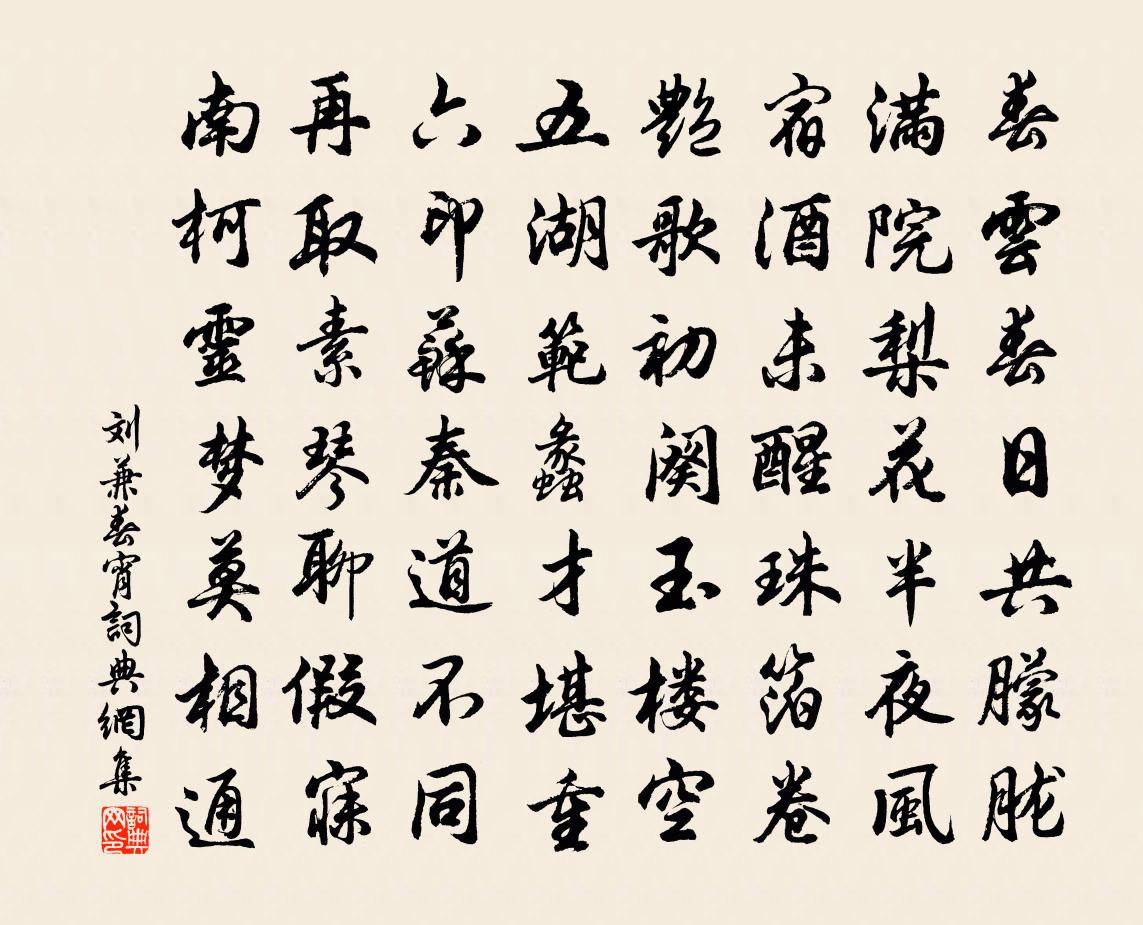 春雲春日共朦朧
滿院梨花半夜風
宿酒未醒珠箔卷
艷歌初闋玉楼空
五湖範蠡才堪重
六印蘇秦道不同
再取素琴聊假寐
南柯靈梦莫相通
刘兼春宵詞典網集
詞典网印